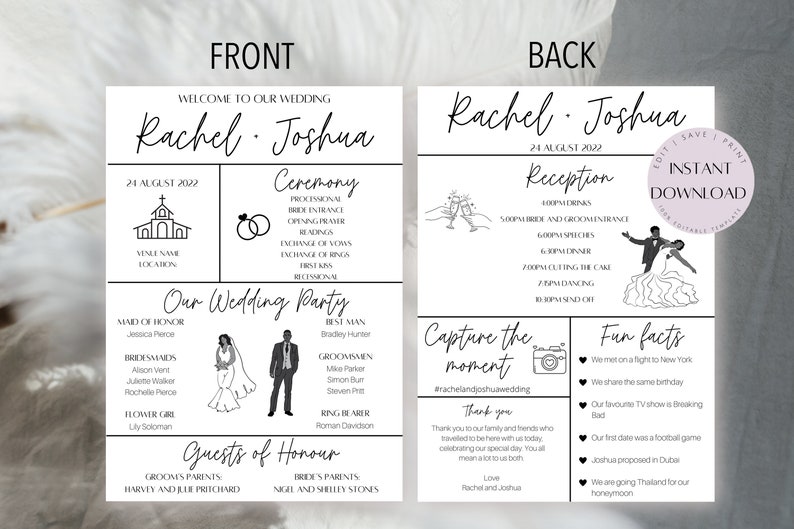 FRONT
WELCOME TO OUR WEDDING
Rachel + Joshua
24 AUGUST 2022
VENUE NAME
LOCATION:
Ceremony
PROCESSIONAL
BRIDE ENTRANCE
OPENING PRAYER
READINGS
EXCHANGE OF VOWS
EXCHANGE OF RINGS
FIRST KISS
RECESSIONAL
Our Wedding Party
MAID OF HONOR
Jessica Pierce
BRIDESMAIDS
Alison Vent
Juliette Walker
Rochelle Pierce
FLOWER GIRL
Lily Soloman
BEST MAN
Bradley Hunter
GROOMSMEN
Mike Parker
Simon Burr
Steven Pritt
RING BEARER
Roman Davidson
Guests of Honour
GROOM'S PARENTS:
HARVEY AND JULIE PRITCHARD
BRIDE'S PARENTS:
NIGEL AND SHELLEY STONES
BACK
Rachel + Joshua
24 AUGUST 2022
EDIT | SAVE | PRINT
INSTANT
DOWNLOAD
100% EDITABLE TEMPLATE
Reception
4:00PM DRINKS
5:00PM BRIDE AND GROOM ENTRANCE
6:00PM SPEECHES
6:30PM DINNER
7:00PM CUTTING THE CAKE
7:15PM DANCING
10:30PM SEND OFF
Capture the
moment
#rachelandjoshuawedding
Thank you
Thank you to our family and friends who
travelled to be here with us today,
celebrating our special day. You all
mean a lot to us both.
Love
Rachel and Joshua
Fun facts
We met on a flight to New York
We share the same birthday
Our favourite TV show is Breaking
Bad
Our first date was a football game
Joshua proposed in Dubai
We are going Thailand for our
honeymoon